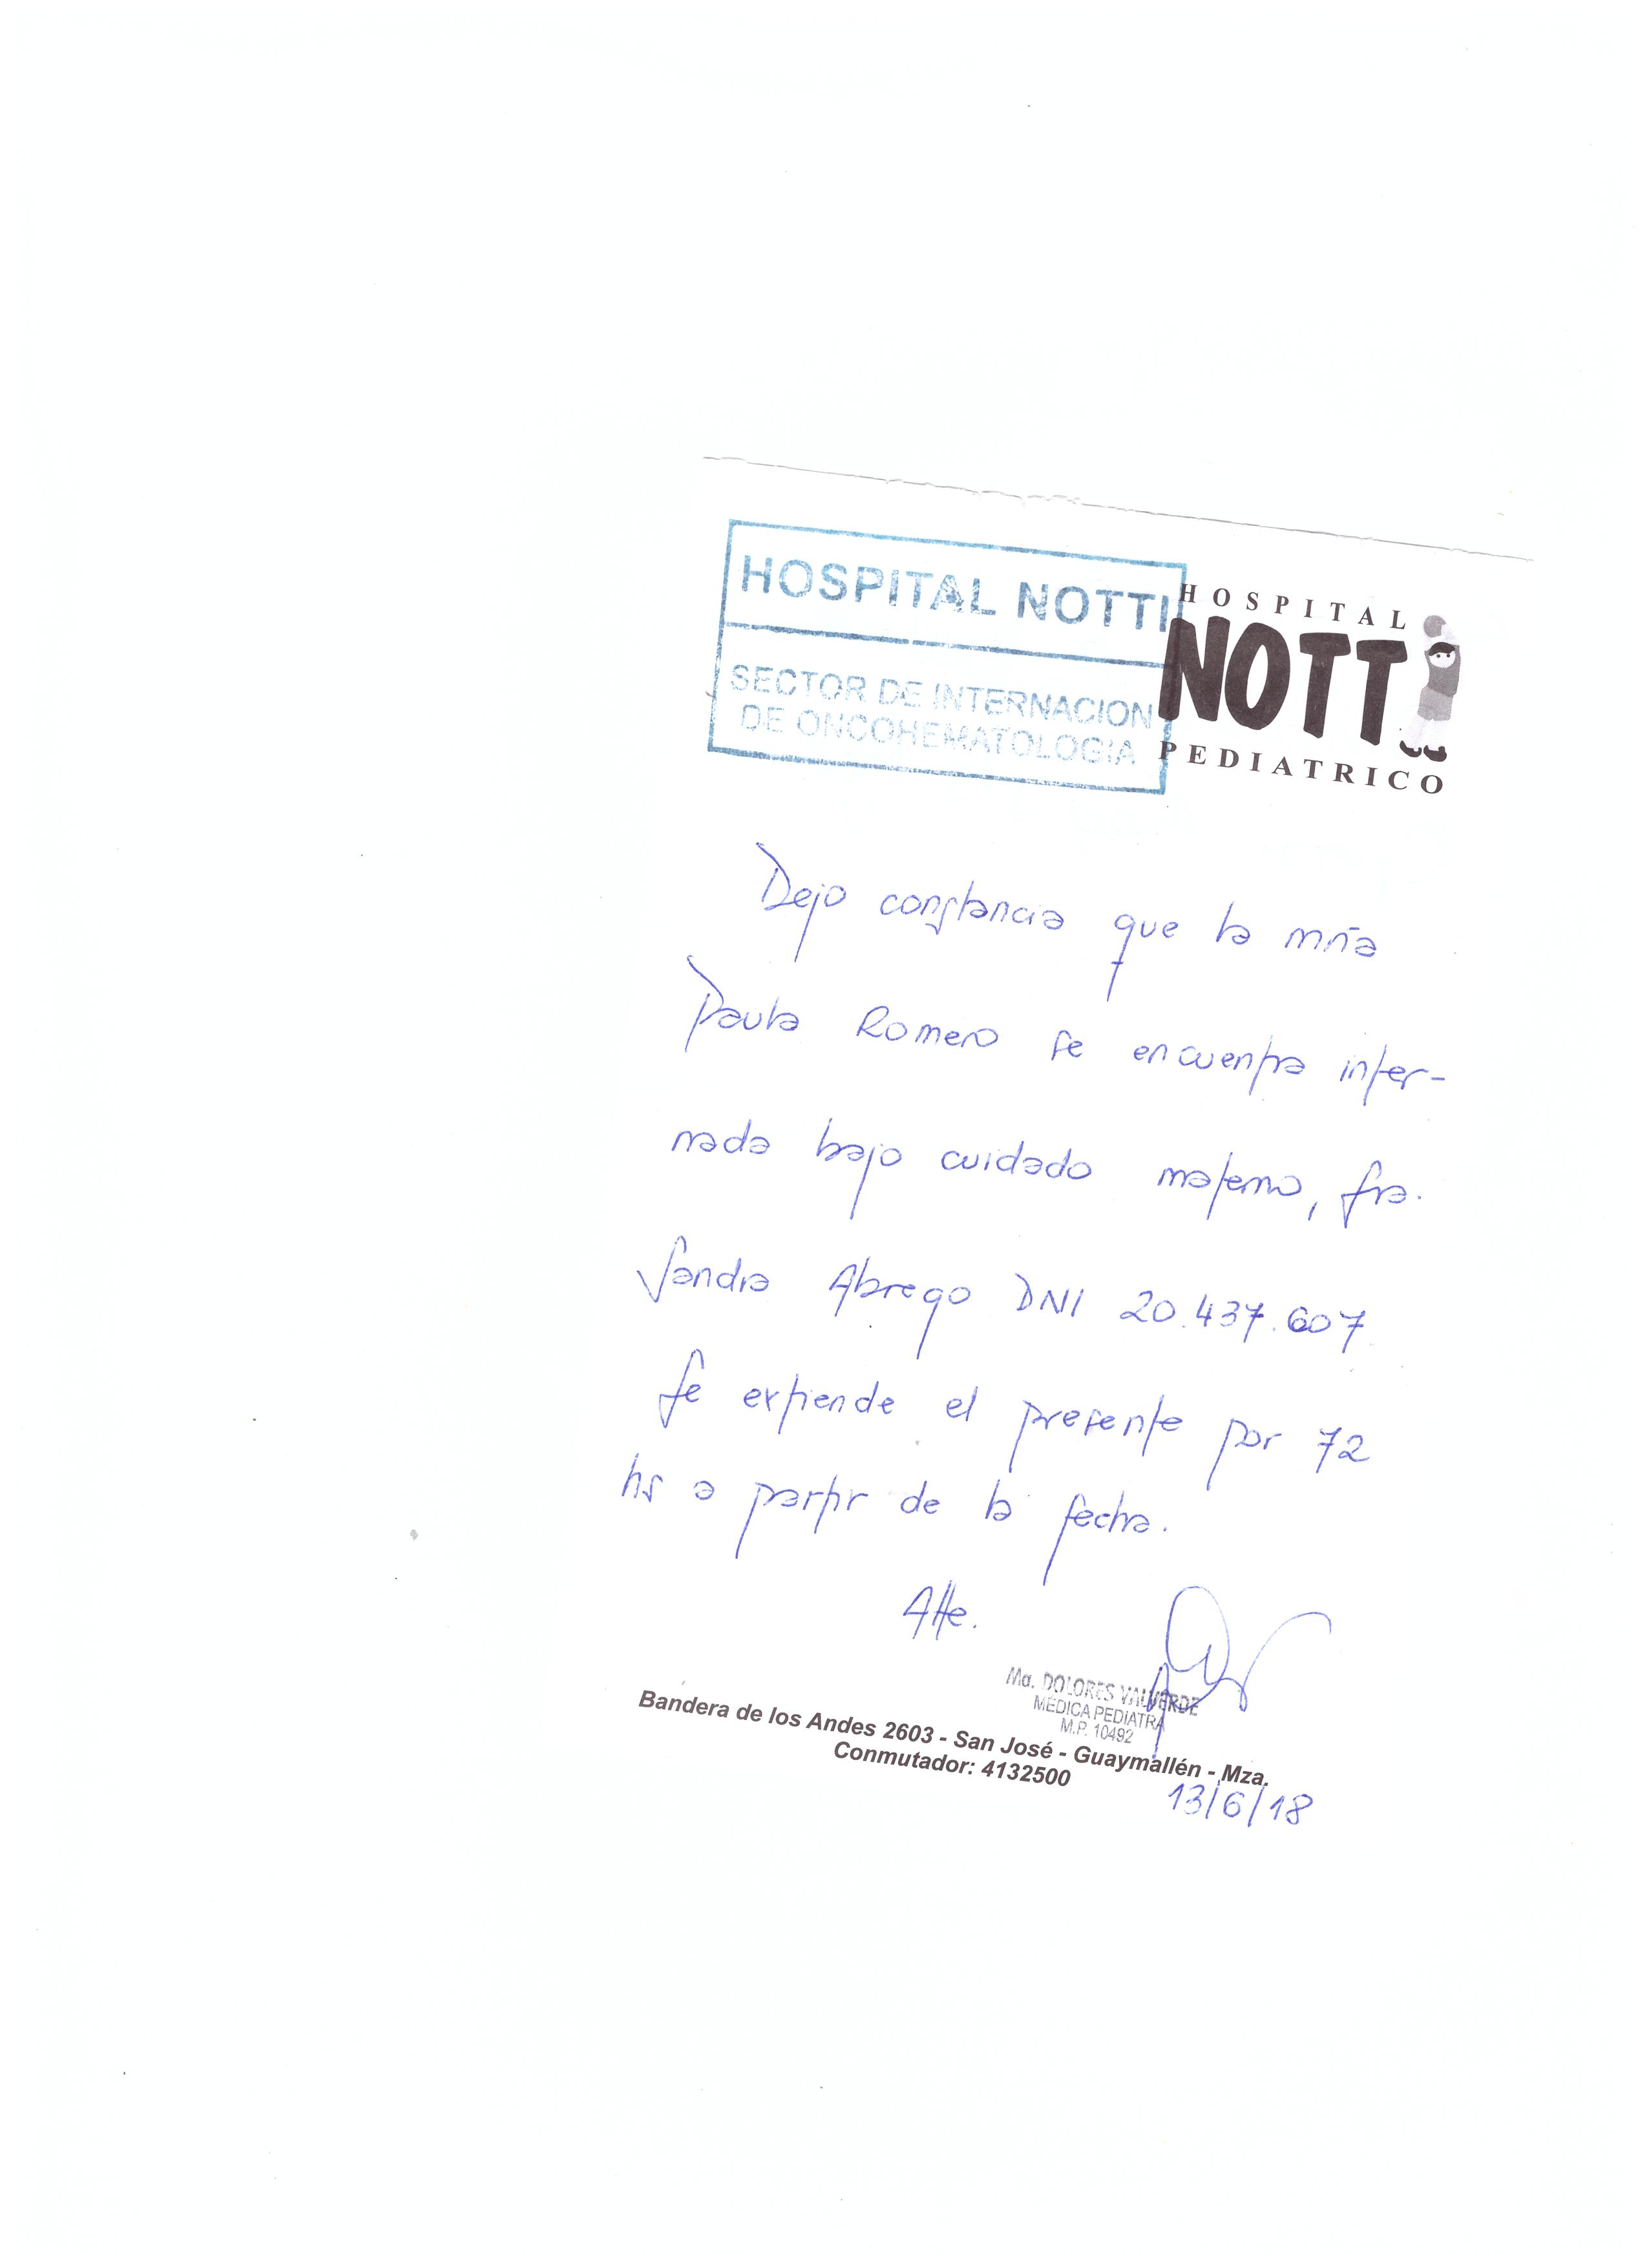 HOSPITAL NOTTI
SECTOR DE INTERNACION
DE ONCOHEMATOLOGIA
HOSPITAL
NOTTI
PEDIATRICO
Dejo constancia que la niña
Paula Romero se encuentra inter-
nada bajo cuidado materno, Sra.
Sandra Abrego DNI 20.437.607
Se extiende el presente por 72
hs a partir de la fecha.
Atte.
Ma. DOLORES VALVERDE
MÉDICA PEDIATRA
M.P. 10492
Bandera de los Andes 2603 - San José - Guaymallén - Mza.
Conmutador: 4132500
13/6/18